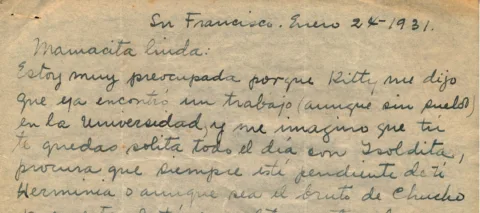 Sn Francisco. Enero 24-1931.
Mamacita linda:
Estoy muy preocupada porque Kitty me dijo
que ya encontró un trabajo (aunque sin sueldo)
en la Universidad, y me imagino que tú
te quedas solita todo el día con Isoldita,
procura que siempre esté pendiente de ti
Herminia o aunque sea el bruto de Chucho